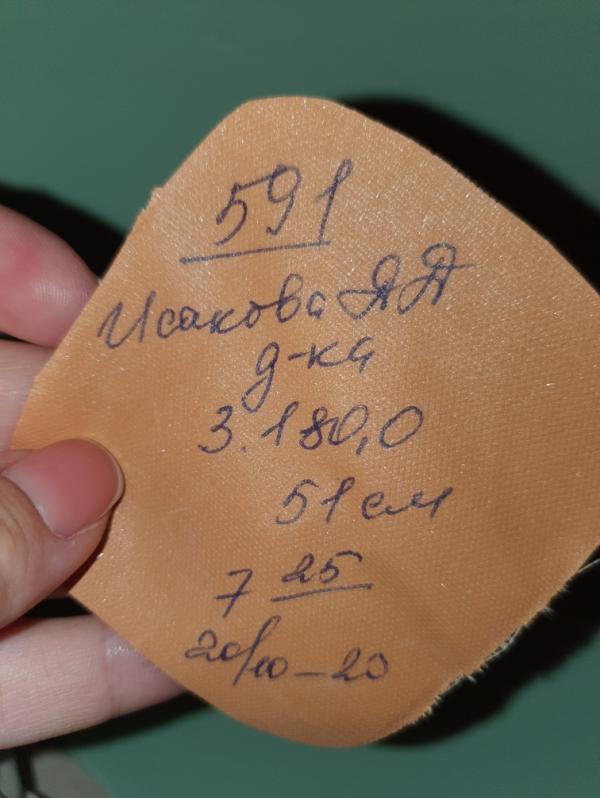 591
Исакова ЯД
д-ка
3.180,0
51 см
7 25
20/10-20